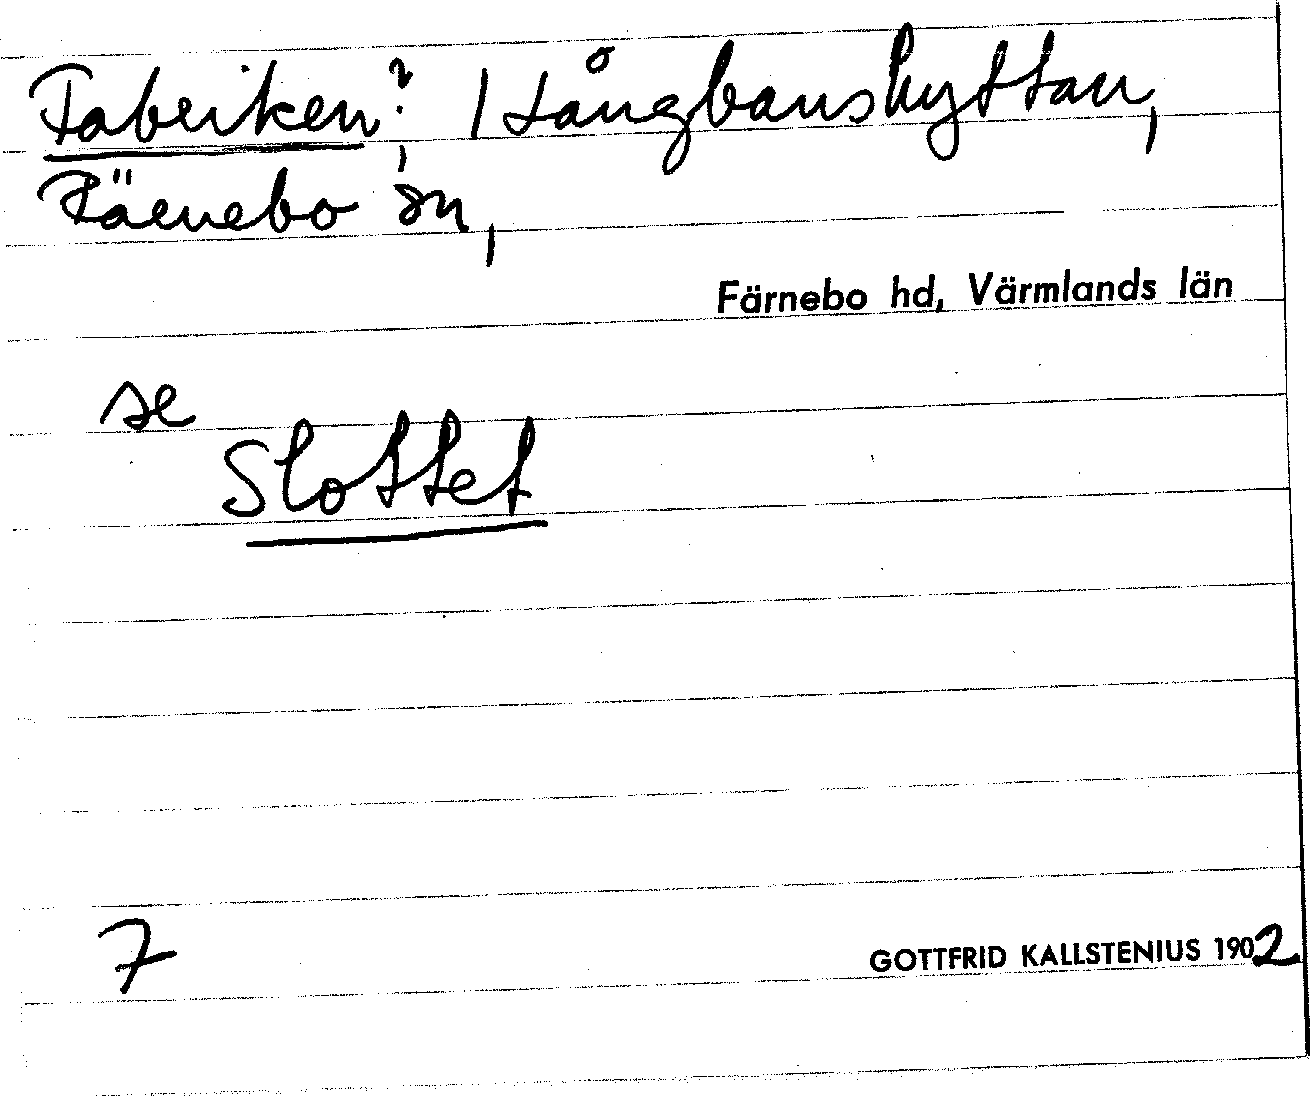 Fabriken?, | Långbanshyttan,
Färnebo sn,
Färnebo hd, Värmlands län
se
Slottet
7
GOTTFRID KALLSTENIUS 1902